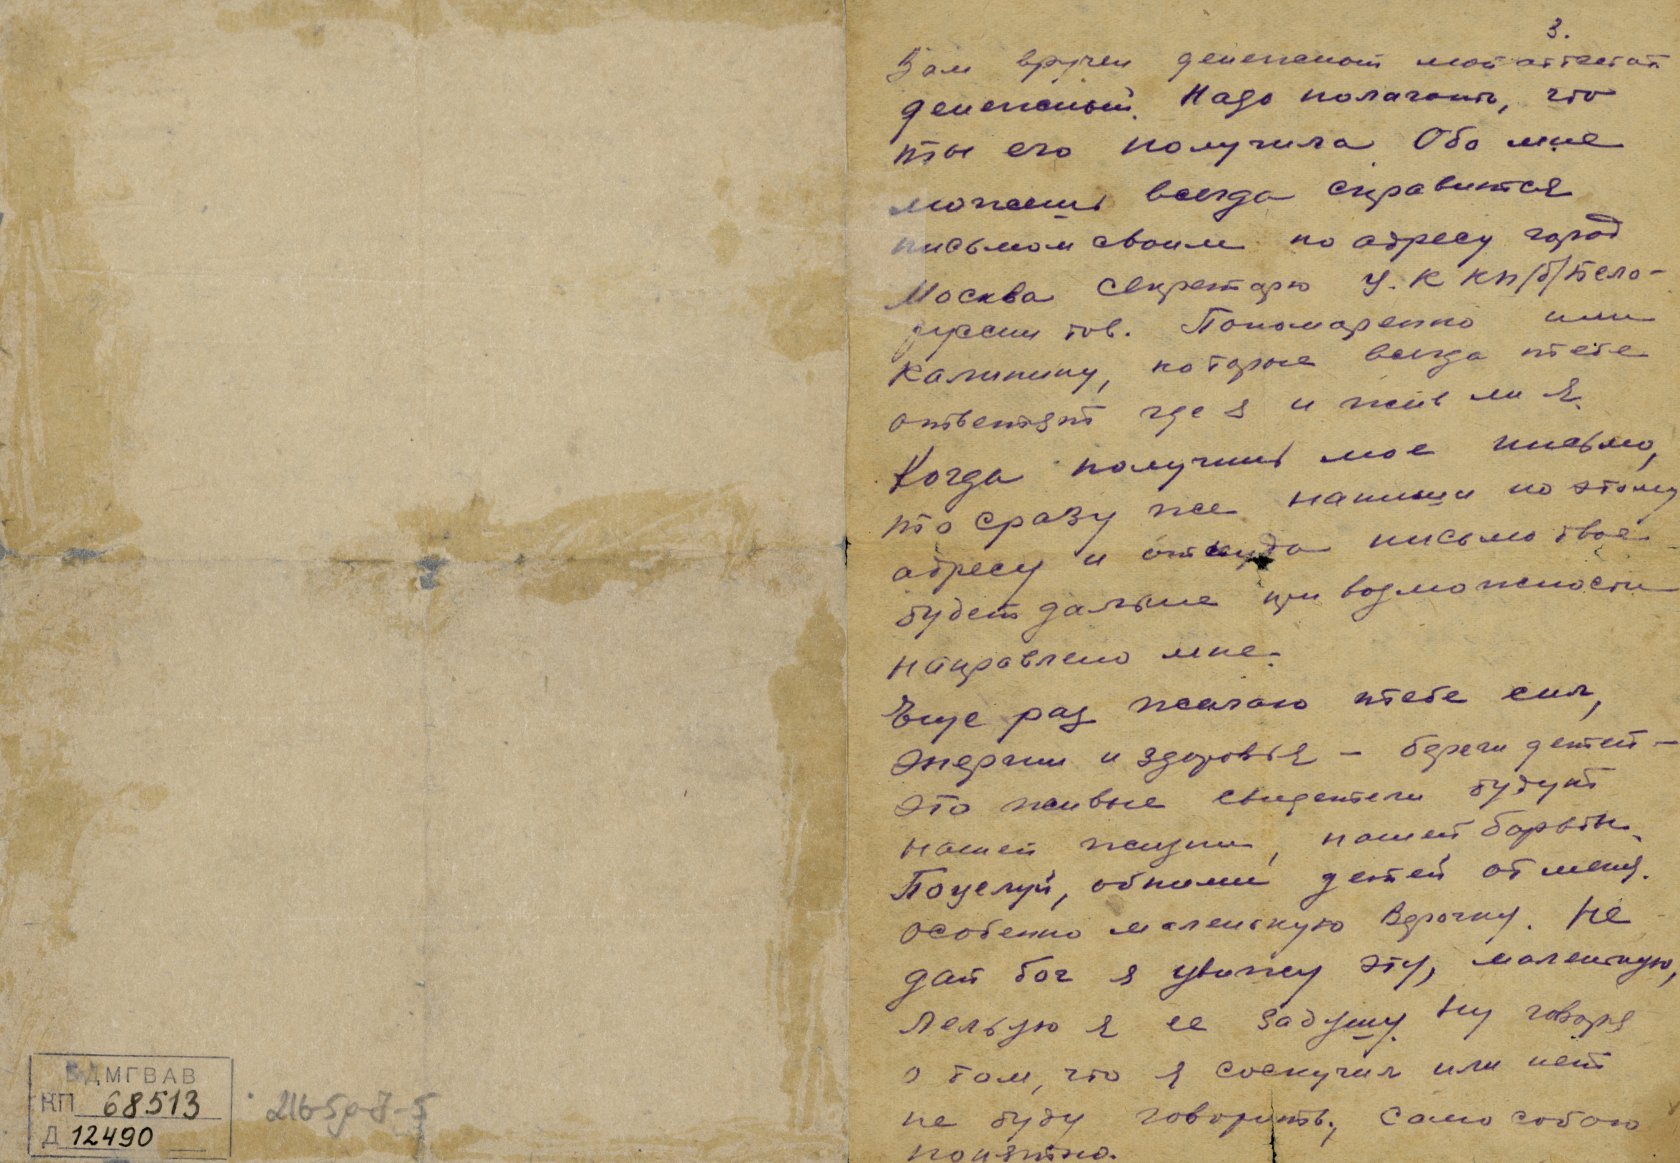 БДМГВАВ
КП 68513
Д 12490
3.
Вам вручен денежной мой аттестат
денежный. Надо полагать, что
ты его получила. Обо мне
можешь всегда справится
письмом своим по адресу город
Москва Секретарю Ц.К КП/б/ Бело-
русии тов. Пономаренко или
Калинину, которые всегда тебе
ответят где я и жив ли я.
Когда получишь мое письмо,
то сразу же напиши по этому
адресу и оттуда письмо твое
будет дальше при возможности
направлено мне.
Еще раз желаю тебе сил,
энергии и здоровья - береги детей -
это живые свидетели будут
нашей жизни, нашей борьбы.
Поцелуй, обними детей от меня.
особенно маленькую Верочку. Не
дай бог я увижу эту, маленькую,
я ее задушу. Ну говоря
о том, что я соскучил или нет
не буду говорить, само собою
понятно.